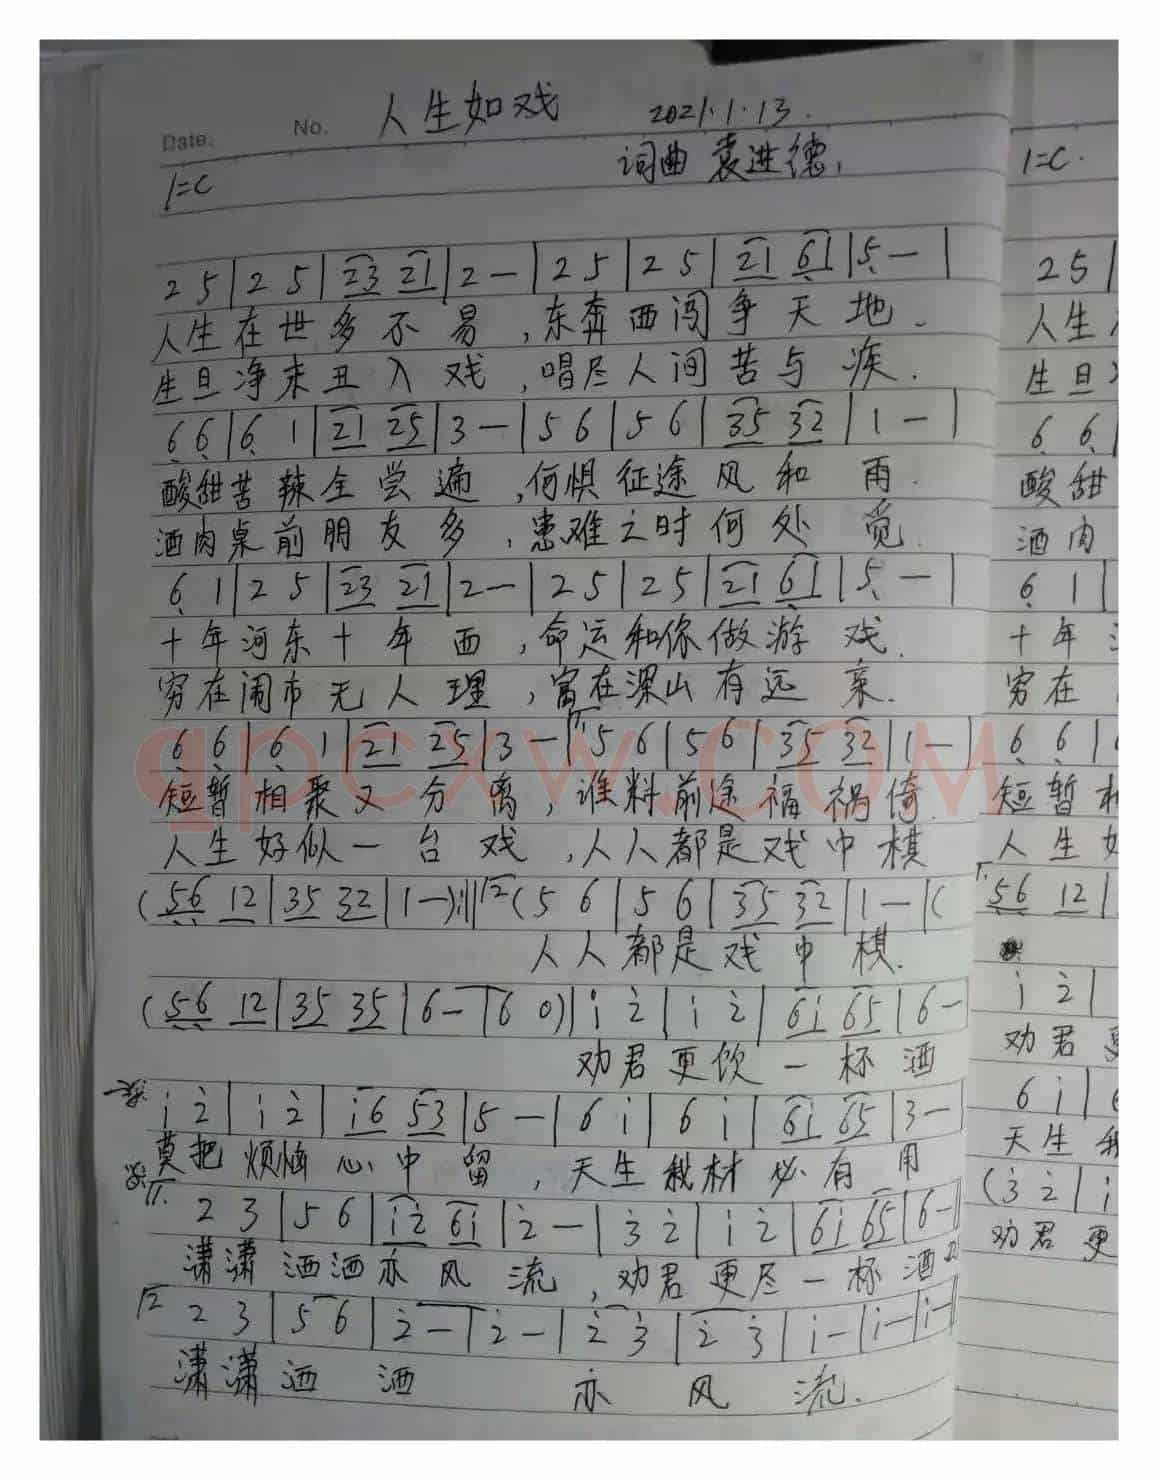 人生如戏 2021.1.13.
Date. No.
词曲 袁进德.
1=C
2 5 | 2 5 | 23 21 | 2 — | 2 5 | 2 5 | 21 61 | 5 — |
人生在世多不易,东奔西闯争天地.
生旦净末丑入戏,唱尽人间苦与疾.
6 6 | 6 1 | 21 25 | 3 — | 5 6 | 5 6 | 35 32 | 1 — |
酸甜苦辣全尝遍,何惧征途风和雨.
酒肉桌前朋友多,患难之时何处觅.
6 1 | 2 5 | 23 21 | 2 — | 2 5 | 2 5 | 21 61 | 5 — |
十年河东十年西,命运和你做游戏.
穷在闹市无人理,富在深山有远亲.
6 6 | 6 1 | 21 25 | 3 — | 5 6 | 5 6 | 35 32 | 1 — |
短暂相聚又分离,谁料前途福祸倚.
人生好似一台戏,人人都是戏中棋
(56 12 | 35 32 | 1 —):‖ 2 (5 6 | 5 6 | 35 32 | 1 — | (
人人都是戏中棋.
(56 12 | 35 35 | 6 — | 6 0) | i 2̇ | i 2̇ | 6i 65 | 6 —
劝君更饮一杯酒
i 2̇ | i 2̇ | i6 53 | 5 — | 6 i | 6 i | 6i 65 | 3 —
莫把烦恼心中留,天生我材必有用
1. 2 3 | 5 6 | i2̇ 6i | 2̇ — | 3̇ 2̇ | i 2̇ | 6i 65 | 6 —
潇潇洒洒亦风流,劝君更尽一杯酒
2 2 3 | 5 6 | 2̇ — | 2̇ — | 2̇ 3̇ | 2̇ 3̇ | i — | i — | i —
潇潇洒洒亦风流.
qpcxw.com
1=C.
2 5 |
人生
生旦
6 6
酸甜
酒肉
6 1 |
十年
穷在
6 6 |
短暂
人生
56 12 |
i 2̇ |
劝君
6 i |
天生
(3̇ 2̇ | i
劝君更